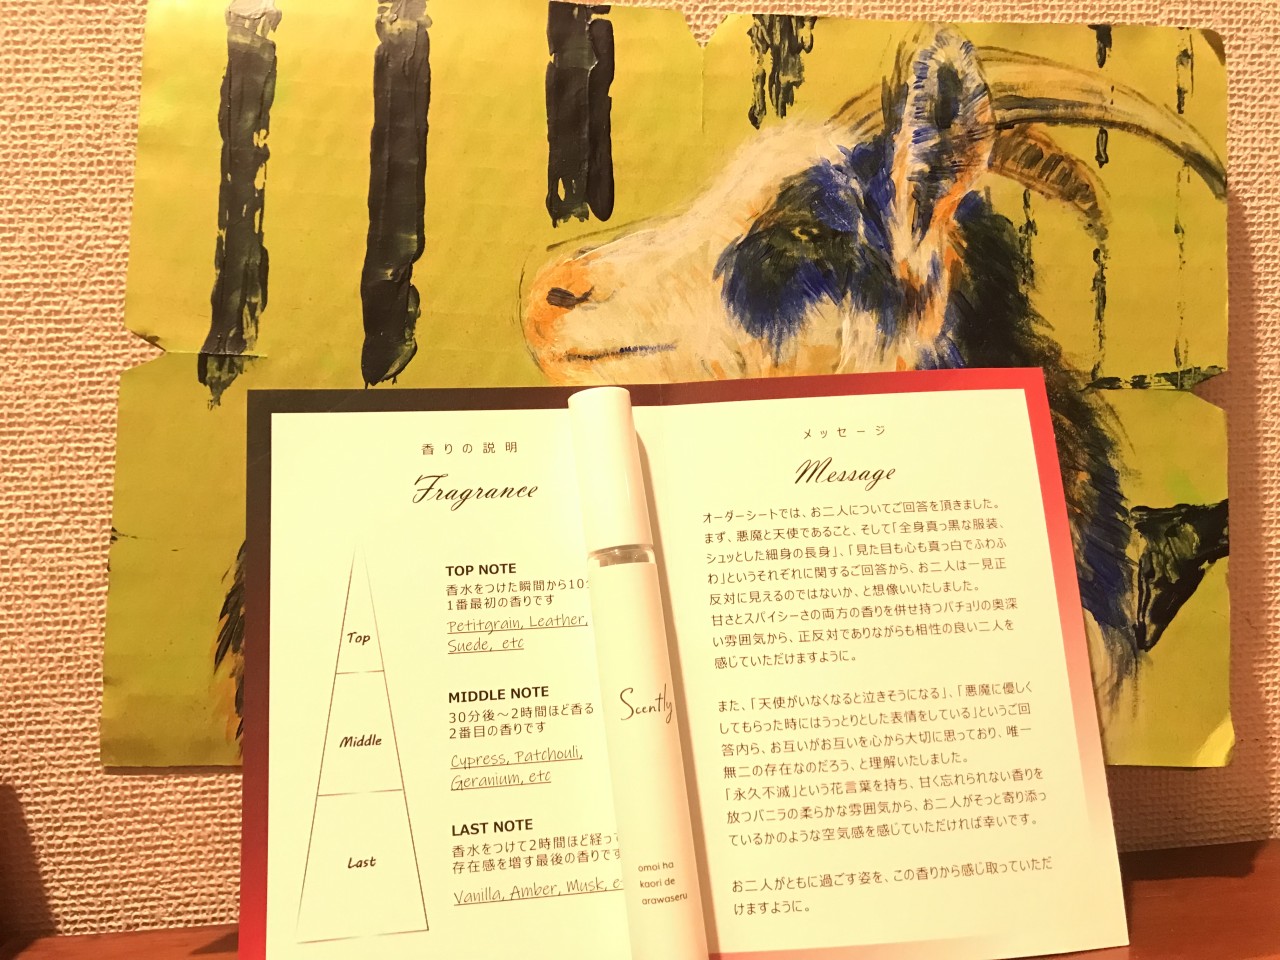 香りの説明
Fragrance
Top
Middle
Last
TOP NOTE
香水をつけた瞬間から10
1番最初の香りです
Petitgrain, Leather,
Suede, etc
MIDDLE NOTE
30分後～2時間ほど香る
2番目の香りです
Cypress, Patchouli,
Geranium, etc
LAST NOTE
香水をつけて2時間ほど経っ
存在感を増す最後の香りです
Vanilla, Amber, Musk,
Scently
omoi ha
kaori de
arawaseru
メッセージ
Message
オーダーシートでは、お二人についてご回答を頂きました。
まず、悪魔と天使であること、そして「全身真っ黒な服装、
シュッとした細身の長身」、「見た目も心も真っ白でふわふ
わ」というそれぞれに関するご回答から、お二人は一見正
反対に見えるのではないか、と想像いたしました。
甘さとスパイシーさの両方の香りを併せ持つパチョリの奥深
い雰囲気から、正反対でありながらも相性の良い二人を
感じていただけますように。
また、「天使がいなくなると泣きそうになる」、「悪魔に優しく
してもらった時にはうっとりとした表情をしている」というご回
答内ら、お互いがお互いを心から大切に思っており、唯一
無二の存在なのだろう、と理解いたしました。
「永久不滅」という花言葉を持ち、甘く忘れられない香りを
放つバニラの柔らかな雰囲気から、お二人がそっと寄り添っ
ているかのような空気感を感じていただければ幸いです。
お二人がともに過ごす姿を、この香りから感じ取っていただ
けますように。